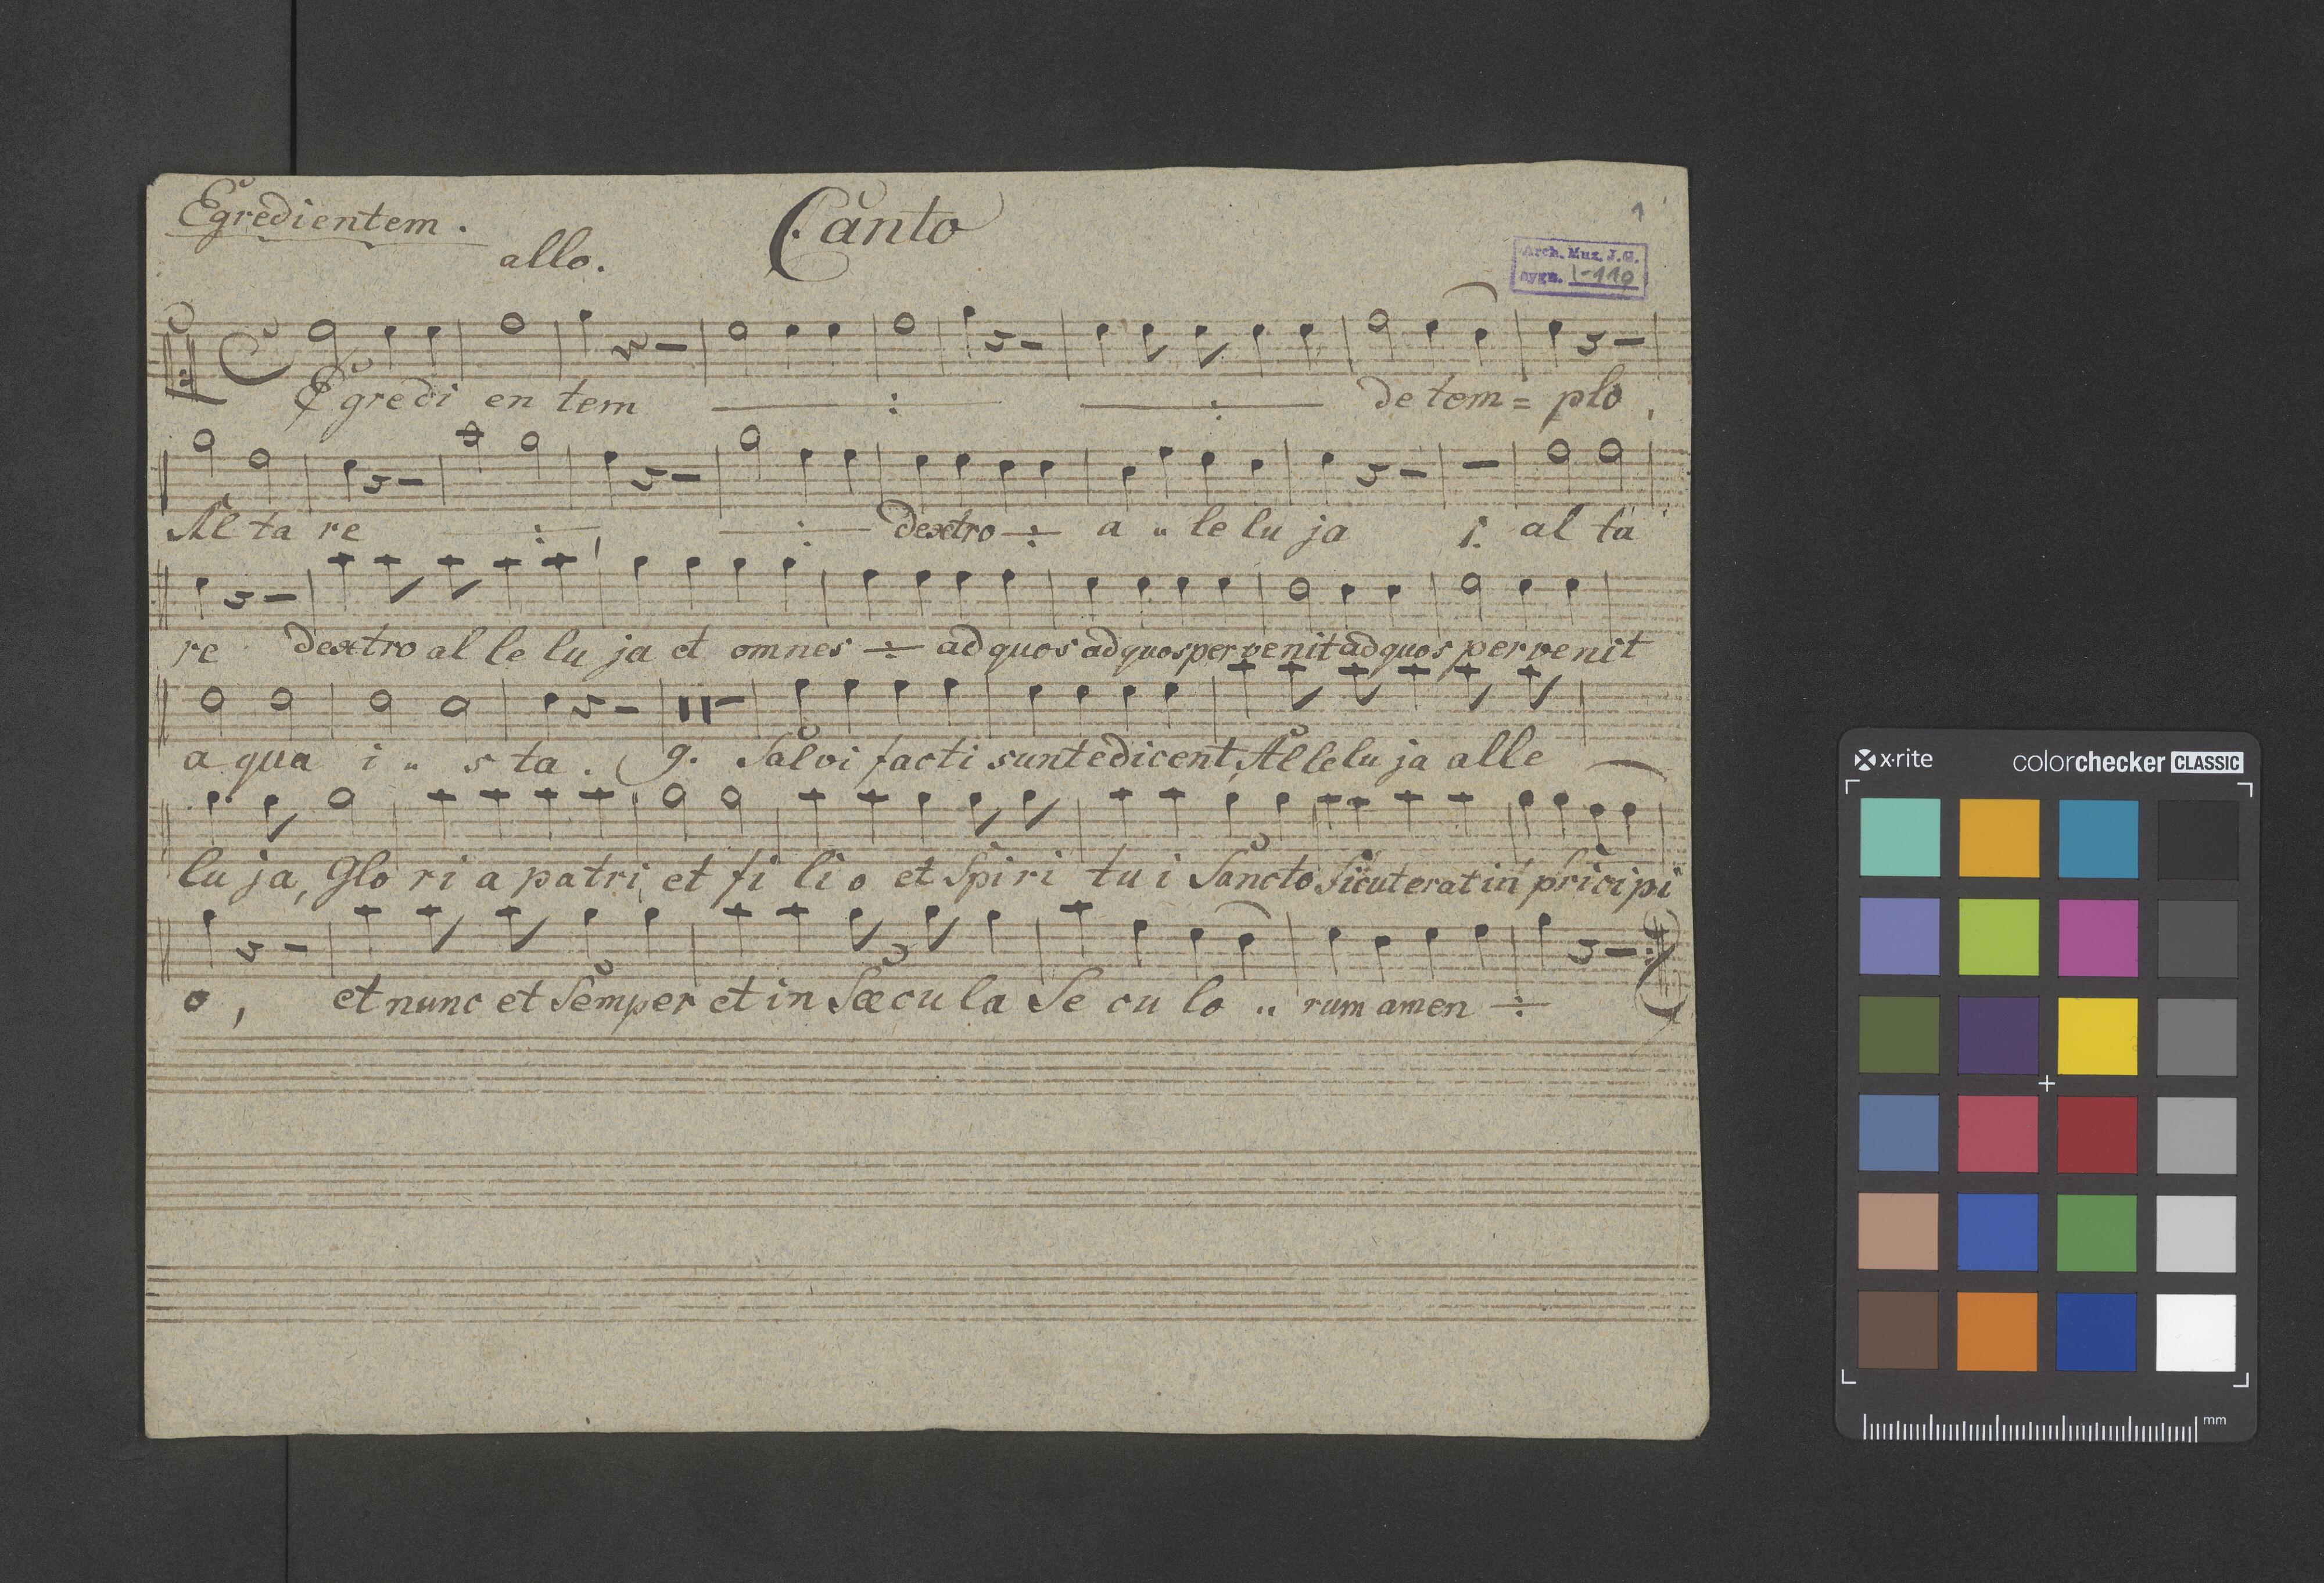 Egredientem.
Canto
1
allo.
Arch. Muz. J.G.
sygn. I-110
Egredi en tem ÷ ÷ de tem = plo,
Al ta re ÷, ÷ dextro ÷ a „ le lu ja 1. al ta
re dextro al le lu ja et omnes ÷ ad quos ad quos pervenit ad quos pervenit
a qua i „ s ta. 9. Salvi facti sunt e dicent, Allelu ja alle
lu ja, Glo ri a patri, et fi li o et Spi ri tu i Sancto Sicut erat in pricipi
o, et nunc et Semper et in Sæcu la Se cu lo „ rum amen ÷
x·rite
colorchecker CLASSIC
mm